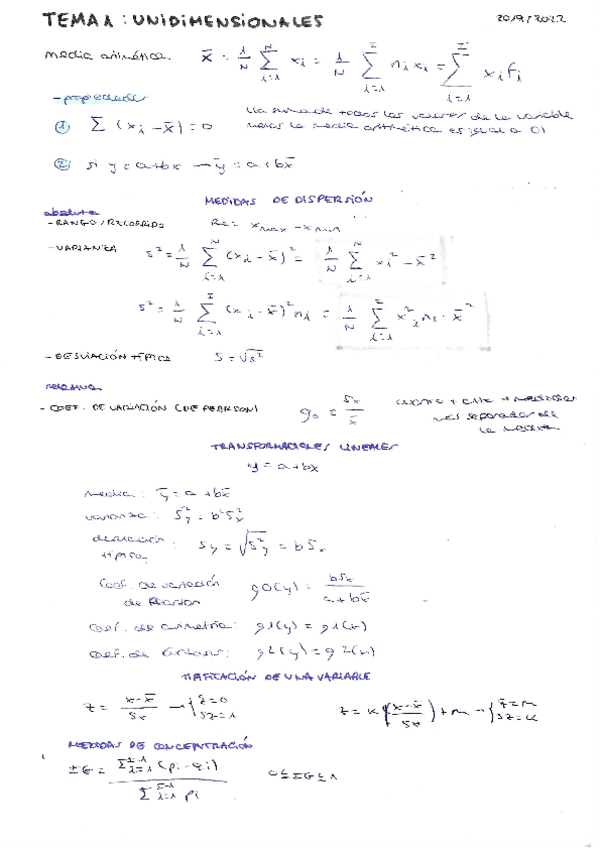 TEMA 1: UNIDIMENSIONALES 20/9/2022
media aritmética. x̄ = 1/N Σ_{i=1}^{N} xi = 1/N Σ_{i=1}^{I} ni xi = Σ_{i=1}^{I} xi fi
- propiedades
① Σ (xi - x̄) = 0 (la suma de todos los valores de la variable
menos la media aritmética es igual a 0)
② si y = a + bx → ȳ = a + bx̄
MEDIDAS DE DISPERSIÓN
absoluta
- RANGO / RECORRIDO Re = xmax - xmin
- VARIANZA s² = 1/N Σ_{i=1}^{N} (xi - x̄)² = 1/N Σ_{i=1}^{N} xi² - x̄²
s² = 1/N Σ_{i=1}^{I} (xi - x̄)² ni = 1/N Σ_{i=1}^{I} x²i ni - x̄²
- DESVIACIÓN TÍPICA S = √s²
relativa
- COEF. DE VARIACIÓN (DE PEARSON) g0 = Sx / x̄ cuanto + alto → medidas
más separadas de
la media.
TRANSFORMACIONES LINEALES
y = a + bx
media: ȳ = a + bx̄
varianza: S²y = b² S²x
desviación típica: Sy = √S²y = b Sx
Coef. de variación de Pearson g0(y) = bSx / a + bx̄
Coef. de asimetría: g1(y) = g1(x)
coef. de curtosis: g2(y) = g2(x)
TIPIFICACIÓN DE UNA VARIABLE
z = x - x̄ / Sx → { z̄ = 0 Sz = 1 z = k (x - x̄ / Sx) + m → { z̄ = m Sz = k
MEDIDAS DE CONCENTRACIÓN
IG = Σ_{i=1}^{I-1} (pi - qi) / Σ_{i=1}^{I-1} pi 0 ≤ IG ≤ 1